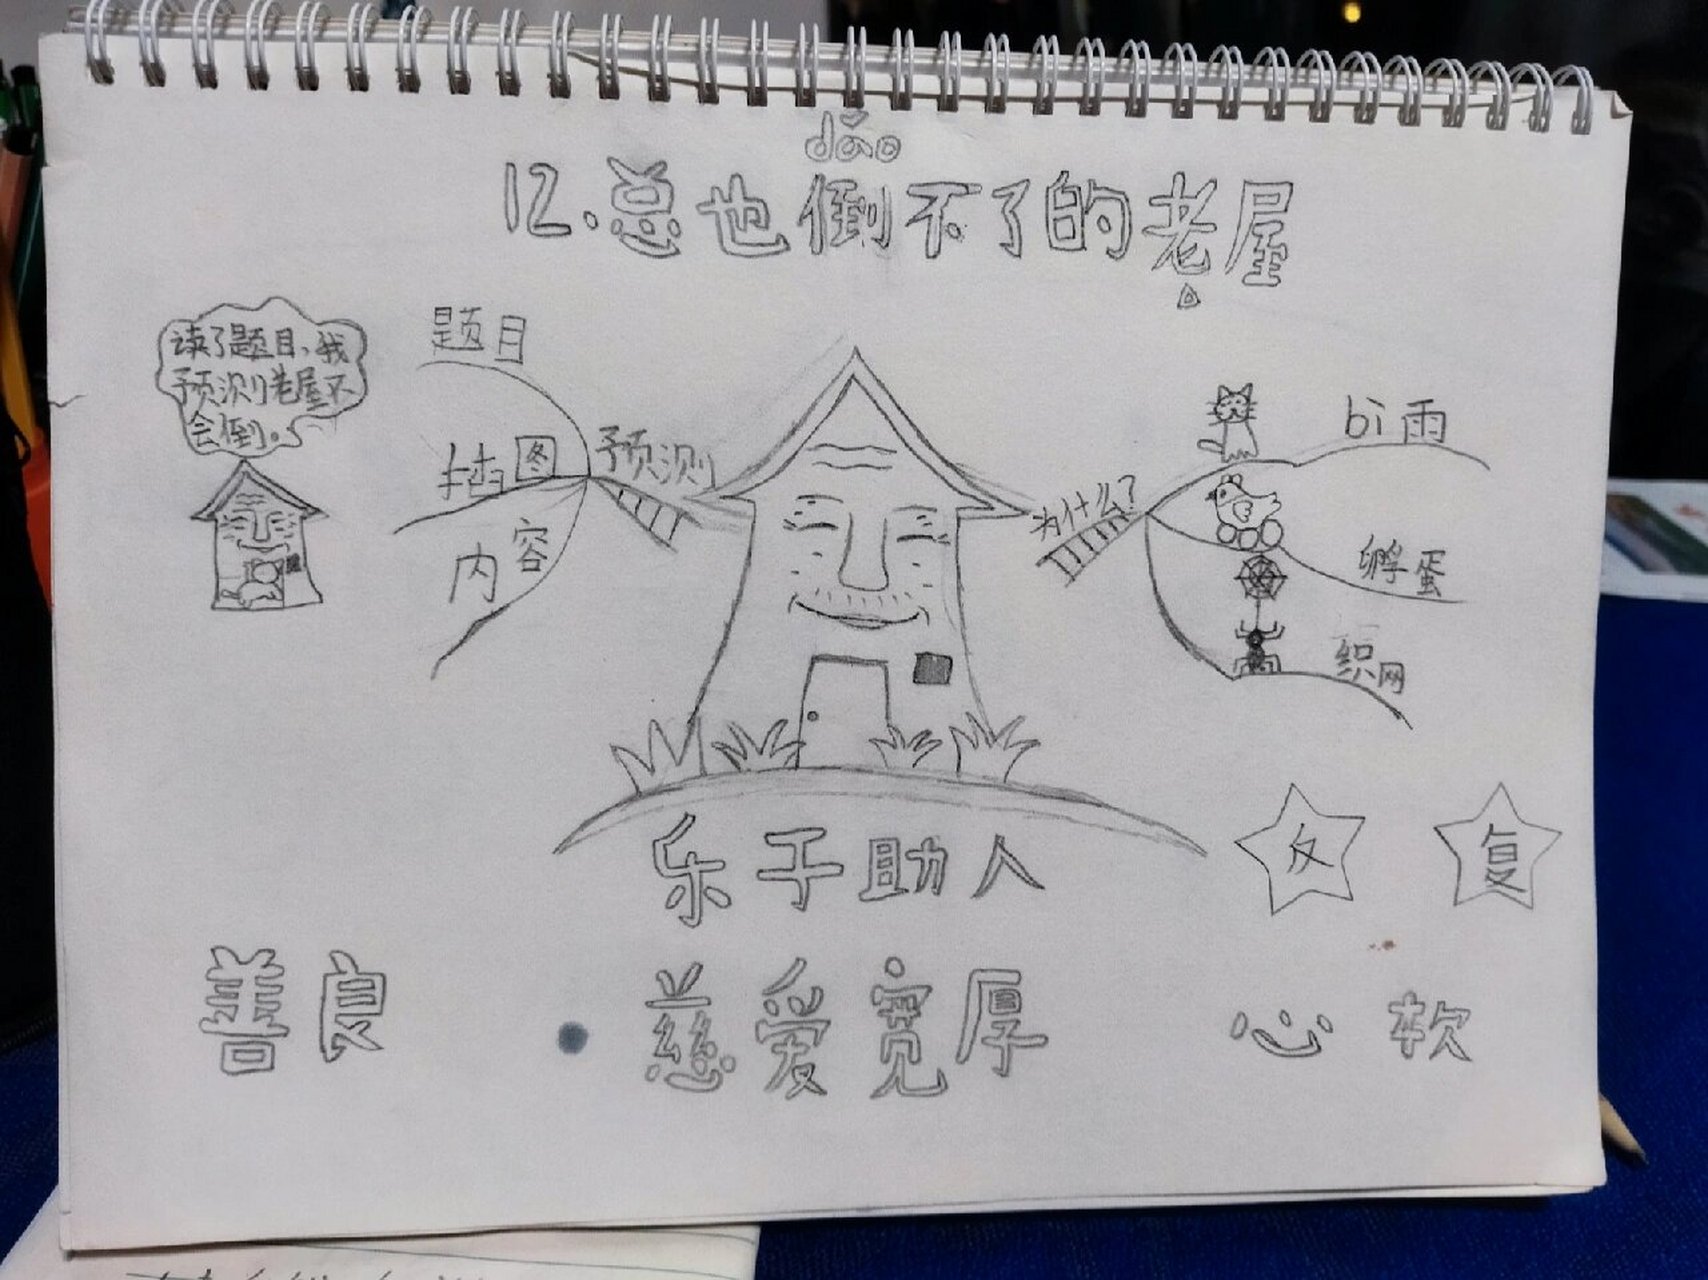 dǎo
12.总也倒不了的老屋
读了题目,我
预测老屋不
会倒。
题目
插图
内容
预测
为什么?
bì雨
孵蛋
织网
乐于助人
反复
善良
慈爱宽厚
心软